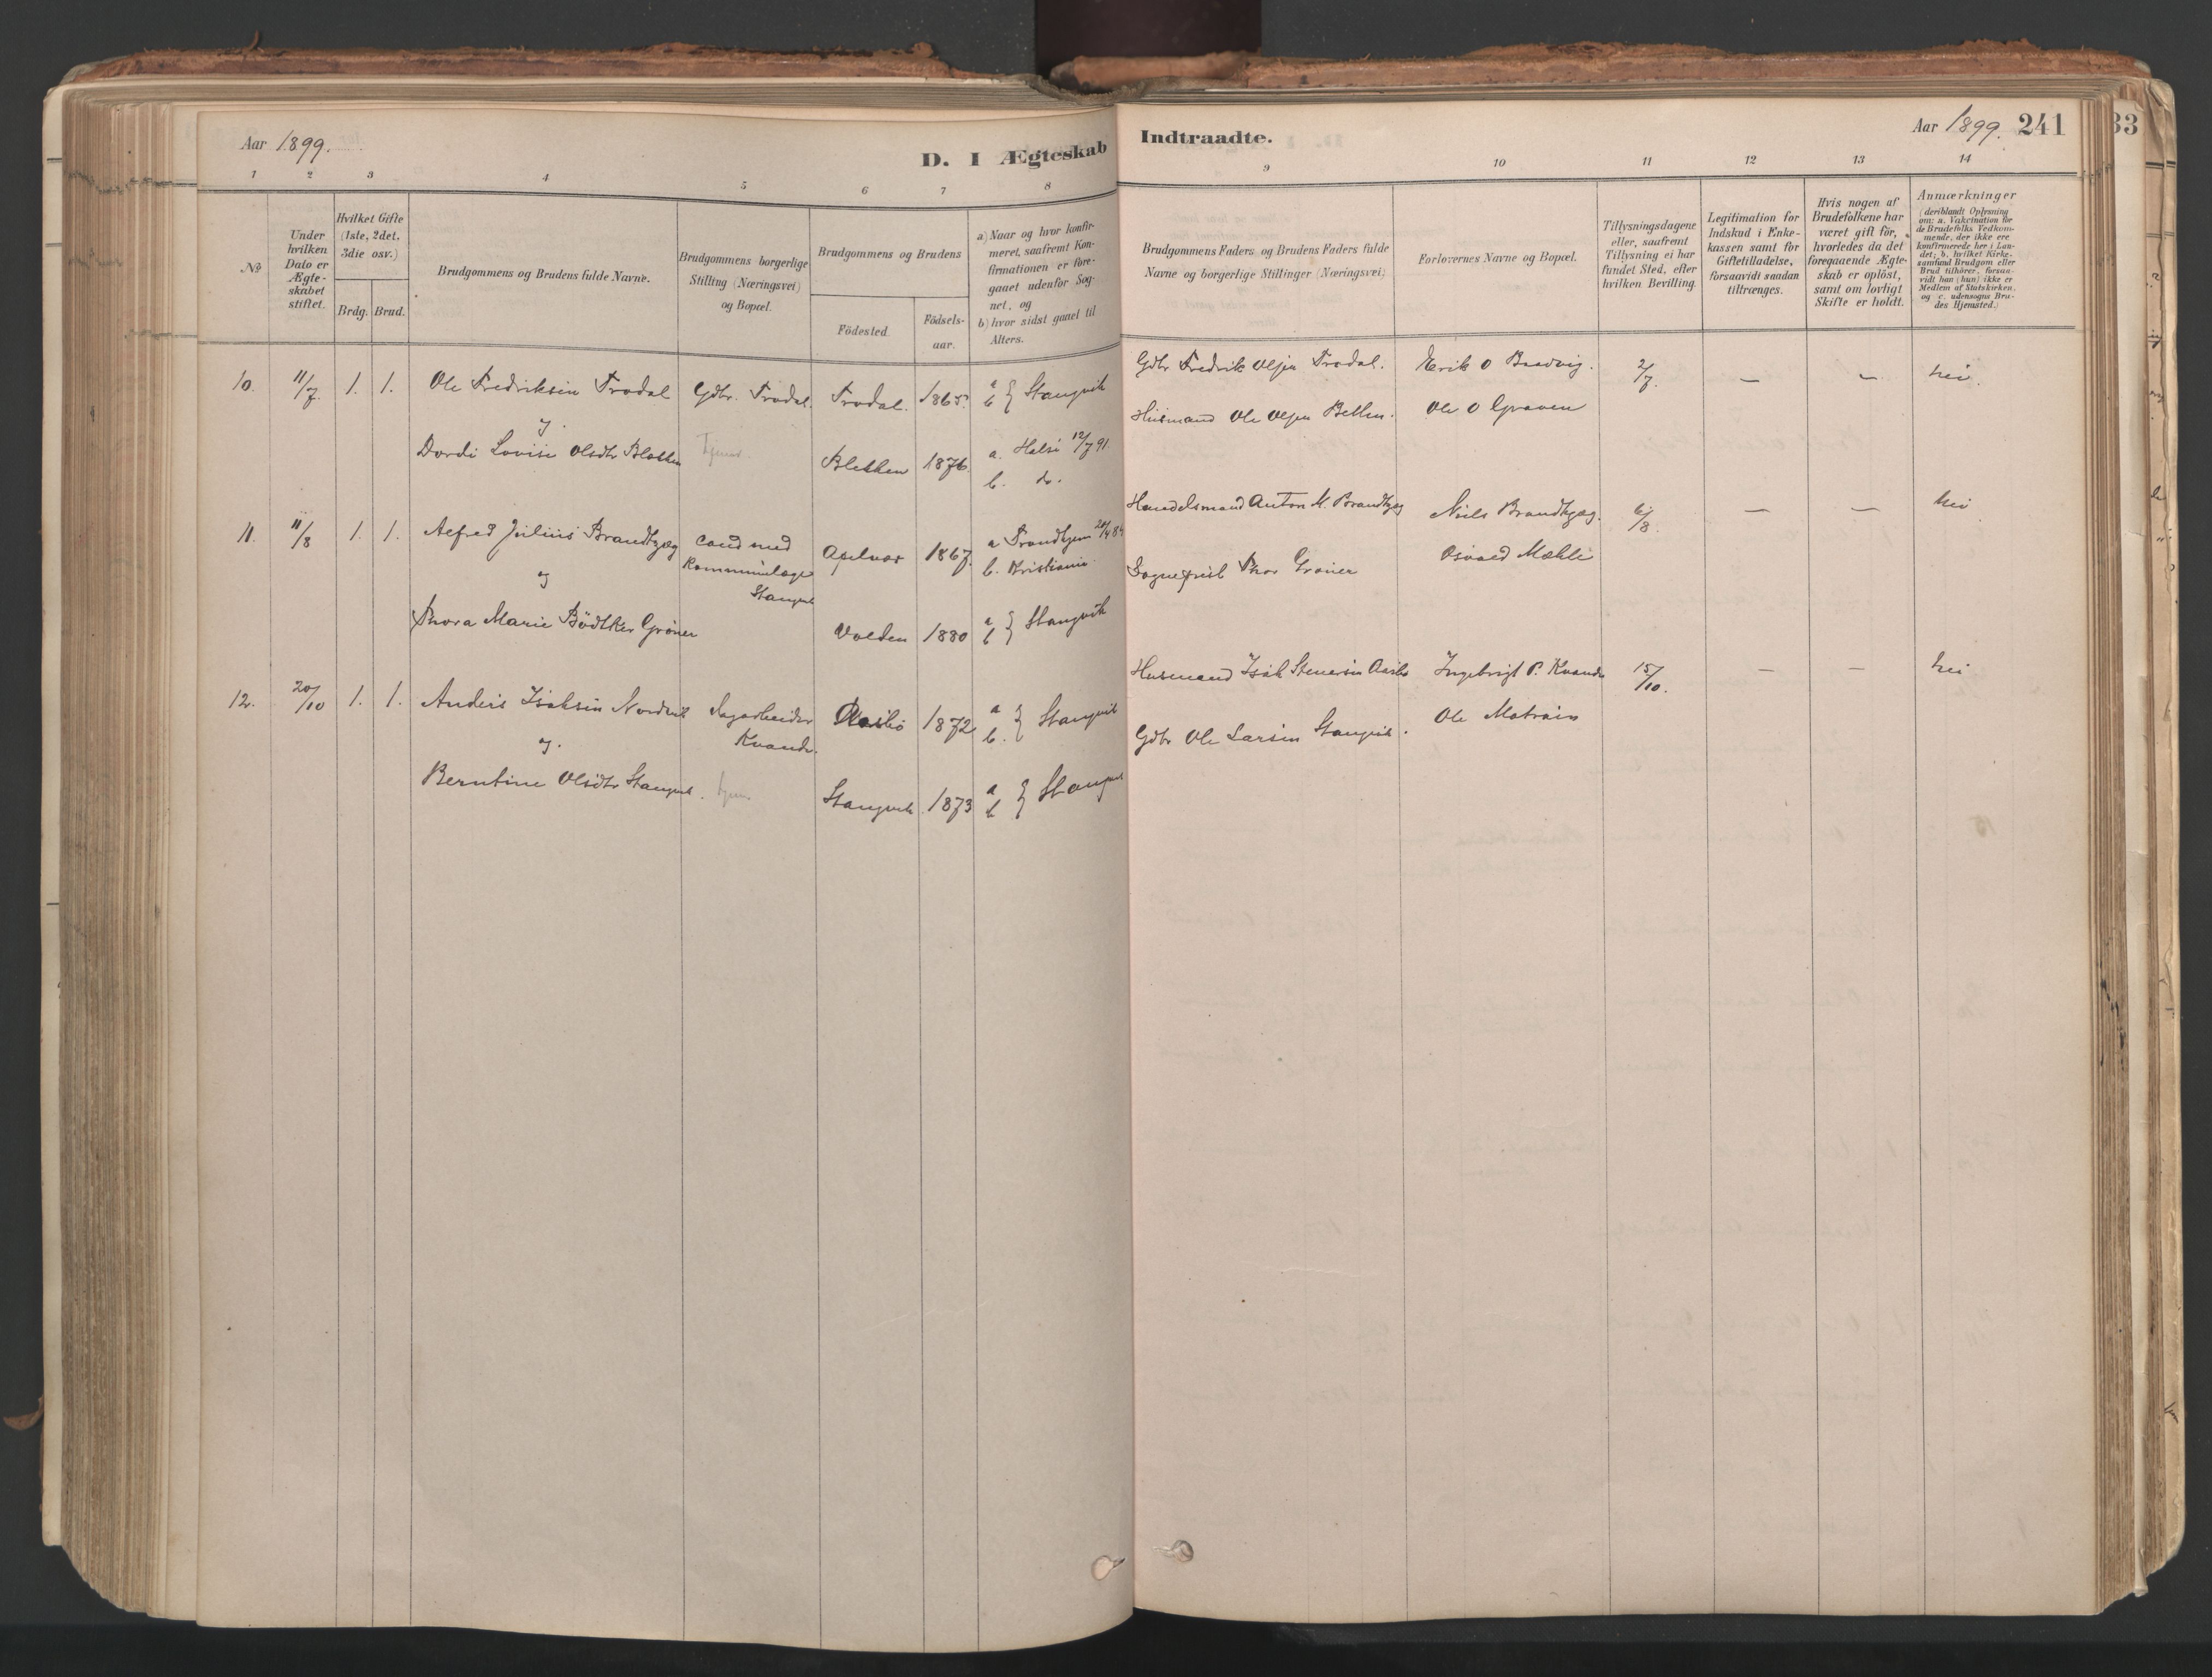 Aar 1899.
D. I Ægteskab
Indtraadte.
Aar 1899. 241
33
1 2 3 4 5 6 7 8 9 10 11 12 13 14
No
Under
hvilken
Dato er
Ægte-
skabet
stiftet.
Hvilket Gifte
(1ste, 2det,
3die osv.)
Brdg. Brud.
Brudgommens og Brudens fulde Navne.
Brudgommens borgerlige
Stilling (Næringsvei)
og Bopæl.
Brudgommens og Brudens
Födested.
Födsels-
aar.
a) Naar og hvor konfir-
meret, saafremt Kon-
firmationen er fore-
gaaet udenfor Sog-
net, og
b) hvor sidst gaaet til
Alters.
Brudgommens Faders og Brudens Faders fulde
Navne og borgerlige Stillinger (Næringsvei)
Forlovernes Navne og Bopæl.
Tillysningsdagene
eller, saafremt
Tillysning ei har
fundet Sted, efter
hvilken Bevilling.
Legitimation for
Indskud i Enke-
kassen samt for
Giftetilladelse,
forsaavidt saadan
tiltrænges.
Hvis nogen af
Brudefolkene har
været gift för,
hvorledes da det
foregaaende Ægte-
skab er oplöst,
samt om lovligt
Skifte er holdt.
Anmærkninger
(deriblandt Oplysning
om: a. Vakcination for
de Brudefolks Vedkom-
mende, der ikke ere
konfirmerede her i Lan-
det; b. hvilket Kirke-
samfund Brudgom eller
Brud tilhörer, forsaa-
vidt han (hun) ikke er
Medlem af Statskirken,
og c. udensogns Bru-
des Hjemsted.)
10. 11/7 1. 1. Ole Fredriksen Trodal Gdbr. Trodal. Trodal. 1865. a b } Stangvik
Gdbr Fredrik Olsen Trodal. Erik O 2/7. — — nei.
Husmand Ole Olsen Ole O Graven
og
Dordi Lovise Olsdtr tjener 1876. a. Halse 12/7 91.
b. do.
11. 11/8 1. 1. Alfred Julius Brandtzæg cand med 1867. a Trondhjem
Kommunelæge b. Kristiania
Stangvik
Handelsmand Anton M. Brandtzæg Niels Brandtzæg. 6/8. — — nei
Sogneprest Thor Gröner Osvald Mæhle
og
Thora Marie Bödtker Gröner Volden 1880 a b } Stangvik
12. 20/10 1. 1. Anders Isaksen Nordvik Dagarbeider 1872 a b. } Stangvik
Kvande.
Husmand Isak Stenersen Ingebrigt P. Kvande 15/10. — — nei
Gdbr Ole Larsen Stangvik. Ole
og
Berntine Olsdtr Stangvik. tjen. Stangvik 1873 a b } Stangvik